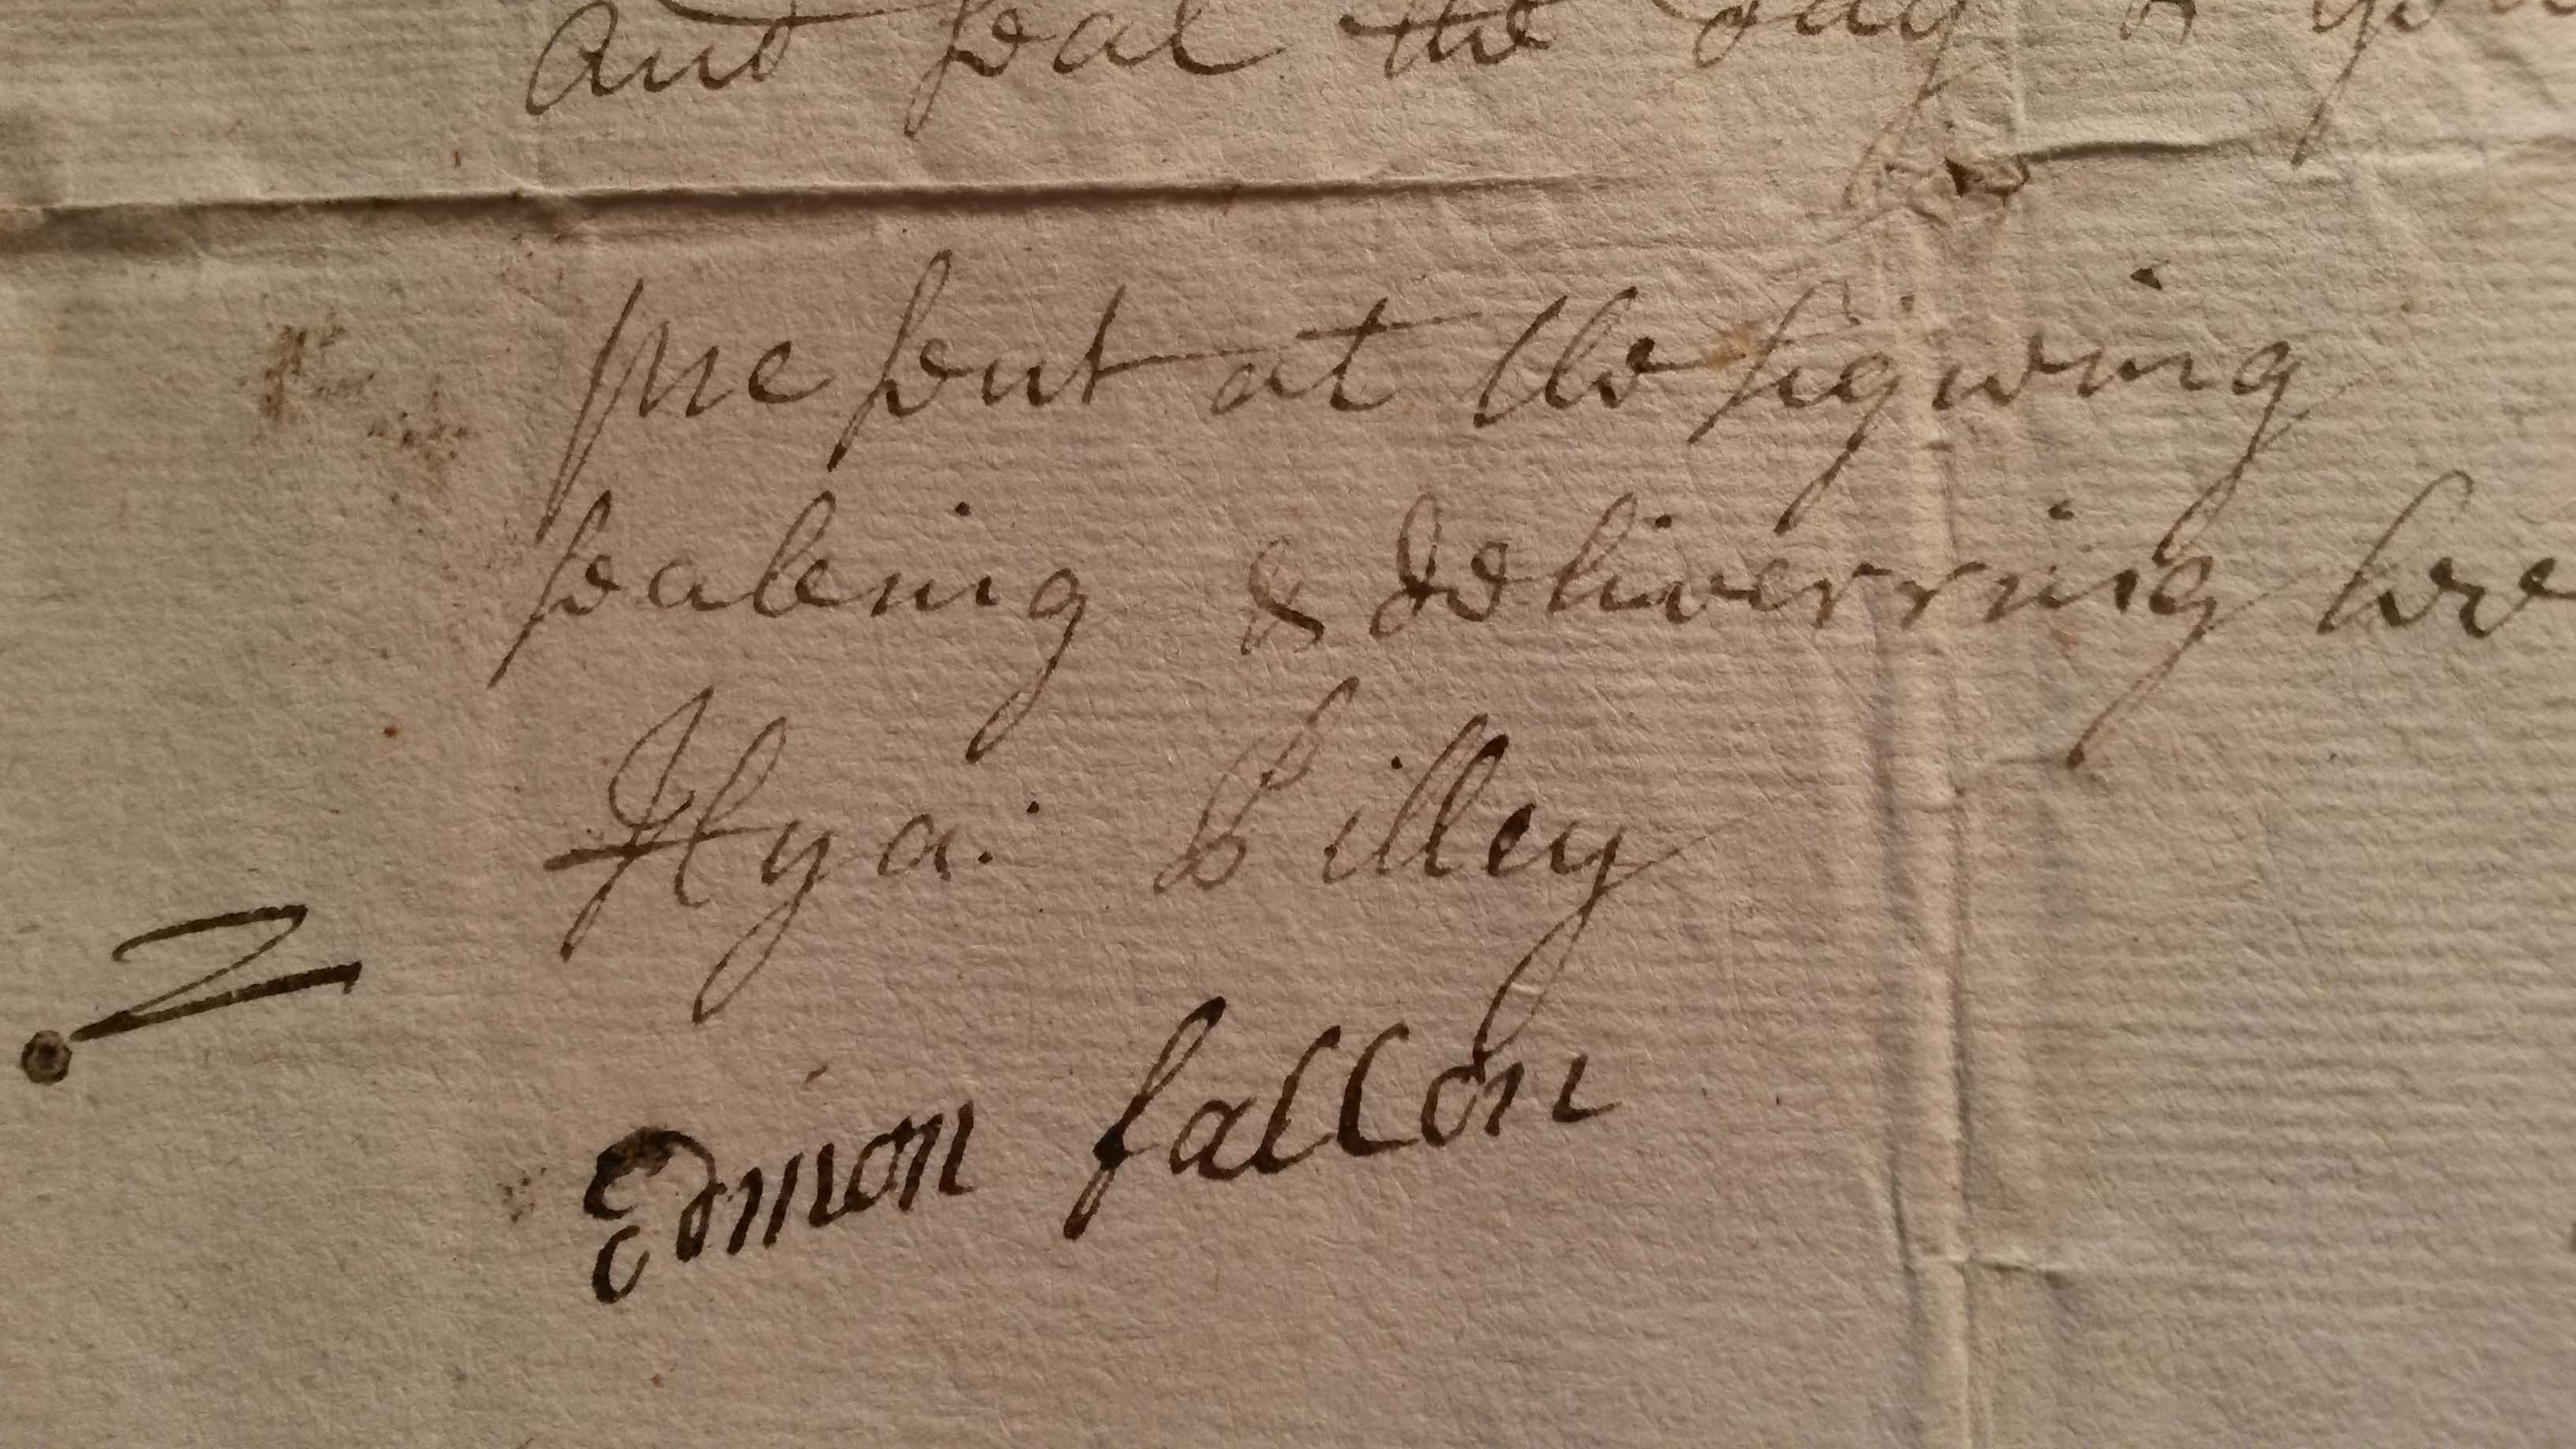 and seal the day &
present at the signing
sealeing & deliverring
Hya: Lilley
Edmon fallon